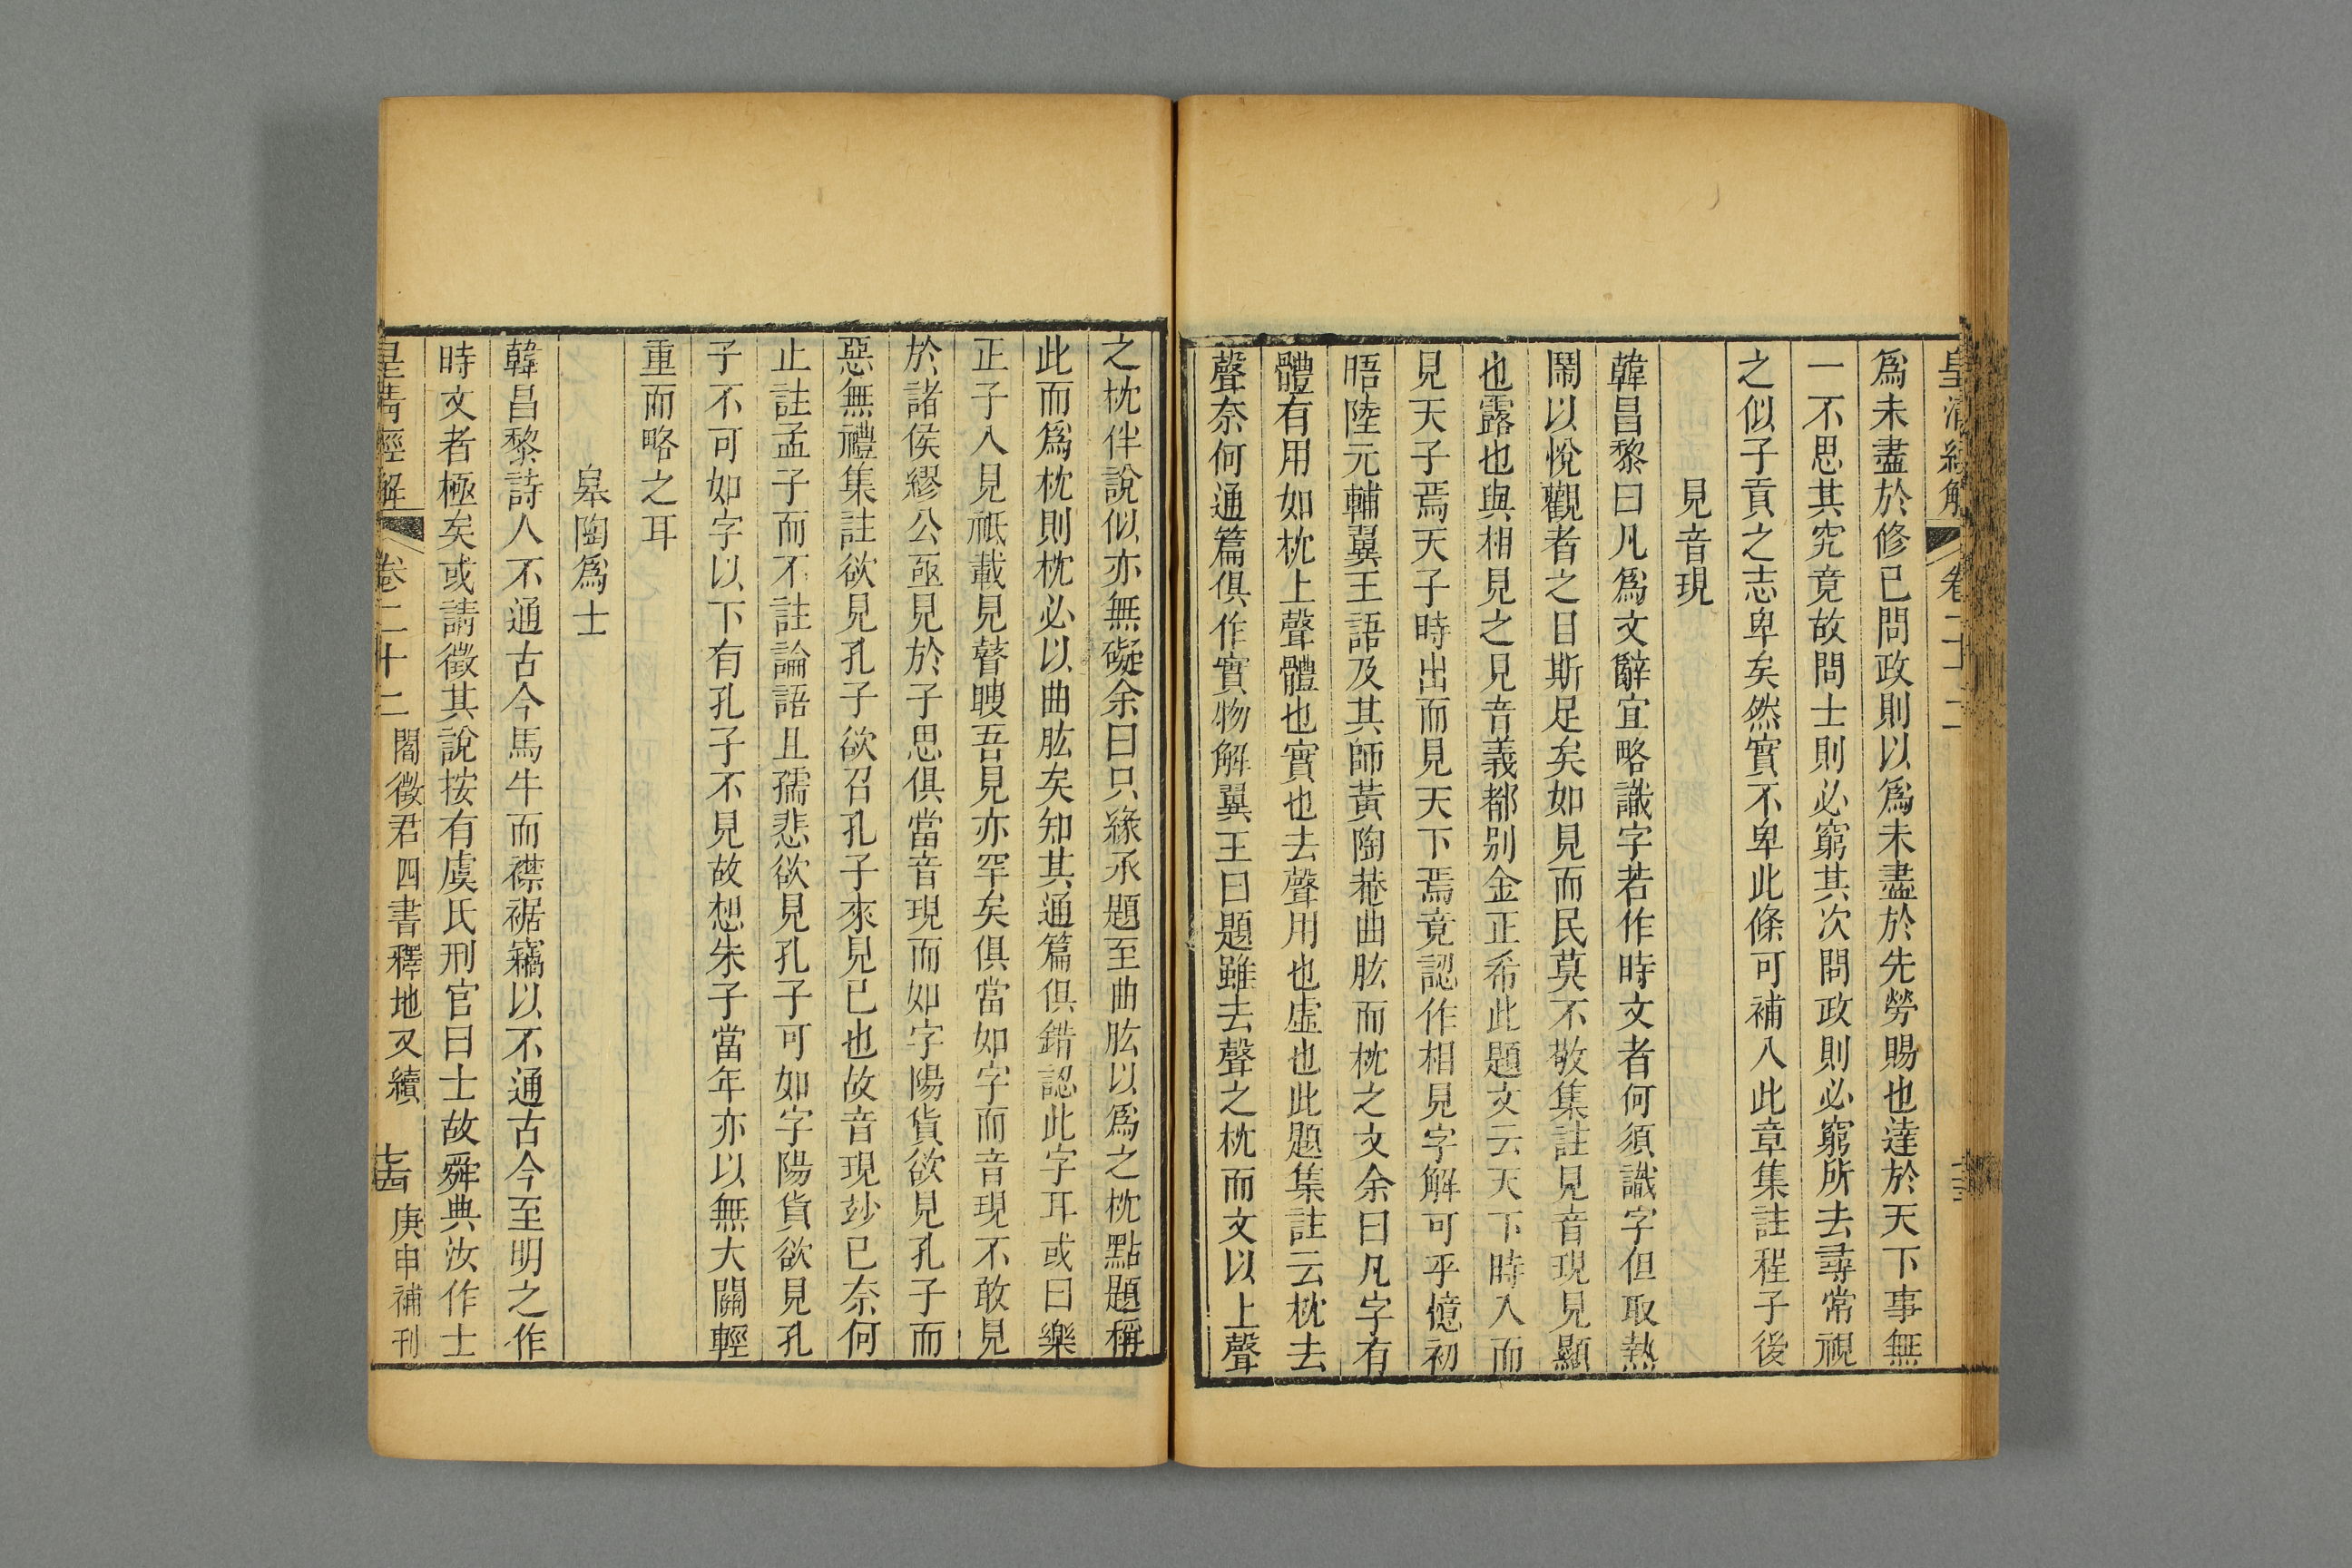 皇清經解 卷二十二
爲未盡於修已問政則以爲未盡於先勞賜也達於天下事無
一不思其究竟故問士則必窮其次問政則必窮所去尋常視
之似子貢之志卑矣然實不卑此條可補入此章集註程子後
見音現
韓昌黎曰凡爲文辭宜略識字若作時文者何須識字但取熱
鬧以悅觀者之目斯足矣如見而民莫不敬集註見音現見顯
也露也與相見之見音義都别金正希此題文云天下時入而
見天子焉天子時出而見天下焉竟認作相見字解可乎憶初
晤陸元輔翼王語及其師黃陶菴曲肱而枕之文余曰凡字有
體有用如枕上聲體也實也去聲用也虛也此題集註云枕去
聲奈何通篇俱作實物解翼王曰題雖去聲之枕而文以上聲
之枕伴說似亦無礙余曰只緣承題至曲肱以爲之枕點題稱
此而爲枕則枕必以曲肱矣知其通篇俱錯認此字耳或曰樂
正子入見祗載見瞽瞍吾見亦罕矣俱當如字而音現不敢見
於諸侯繆公亟見於子思俱當音現而如字陽貨欲見孔子而
惡無禮集註欲見孔子欲召孔子來見已也故音現玅已奈何
止註孟子而不註論語且孺悲欲見孔子可如字陽貨欲見孔
子不可如字以下有孔子不見故想朱子當年亦以無大關輕
重而略之耳
皋陶爲士
韓昌黎詩人不通古今馬牛而襟裾竊以不通古今至明之作
時文者極矣或請徵其說按有虞氏刑官曰士故舜典汝作士
皇清經解 卷二十二 閻徵君四書釋地又續 庚申補刊